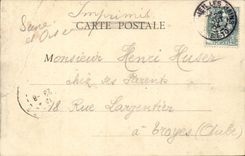 Imprimé
Seine
et Oise
CARTE POSTALE
Monsieur Henri Huser
chez ses Parents
18 Rue Largentier
à Troyes (Aube)